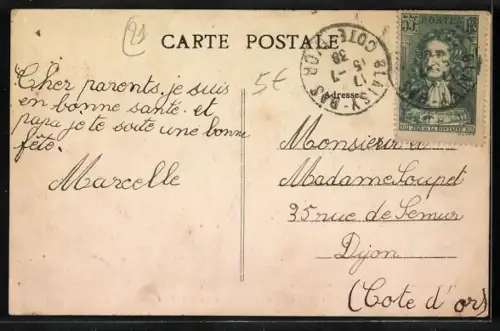 21
CARTE POSTALE
5€
Adresse
BLAISY-BAS
17 15 -7 38
COTE D'OR
55c POSTES RF
JEAN DE LA FONTAINE
Cher parents, je suis
en bonne santé. et
papa je te soite une bonne
fête.
Marcelle
Monsieur et
Madame Loupet
35 rue de Semur
Dijon
(Cote d'or)